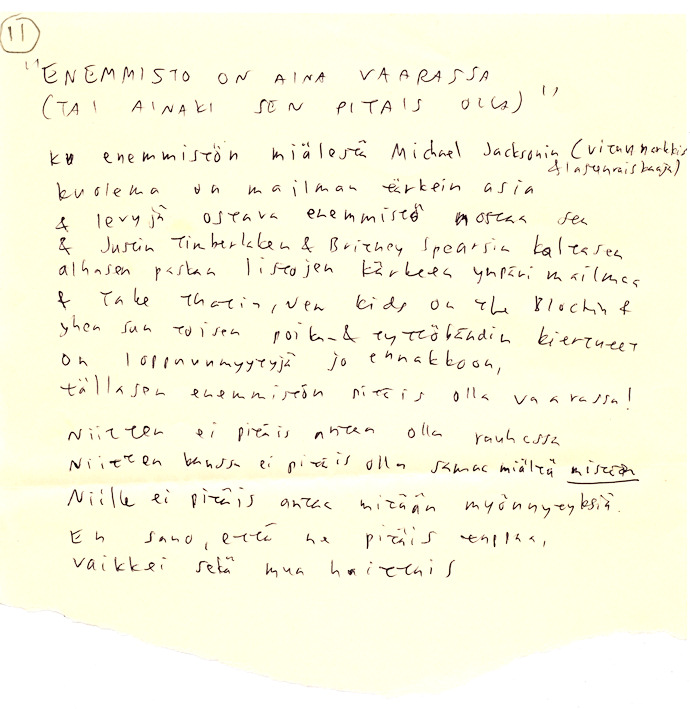 11
"ENEMMISTO ON AINA VAARASSA
(TAI AINAKI SEN PITAIS OLLA)"
ku enemmistön miälestä Michael Jacksonin (vitun narkkis
& lastenraiskaaja)
kuolema on mailman tärkein asia
& levyjä ostava enemmistö nostaa sen
& Justin Timberlaken & Britney Spearsin kaltasen
alhasen paskan listojen kärkeen ympäri mailmaa
& Take Thatin, New kids on the Blockin &
yhen sun toisen poika- & tyttöbändin kiertueet
on loppuunmyytyjä jo ennakkoon,
tällasen enemmistön pitäis olla vaarassa!
Niitten ei pitäis antaa olla rauhassa
Niitten kanssa ei pitäis olla samaa miältä mistään
Niille ei pitäis antaa mitään myönnytyksiä.
En sano, että ne pitäis tappaa,
vaikkei setä mua haittais